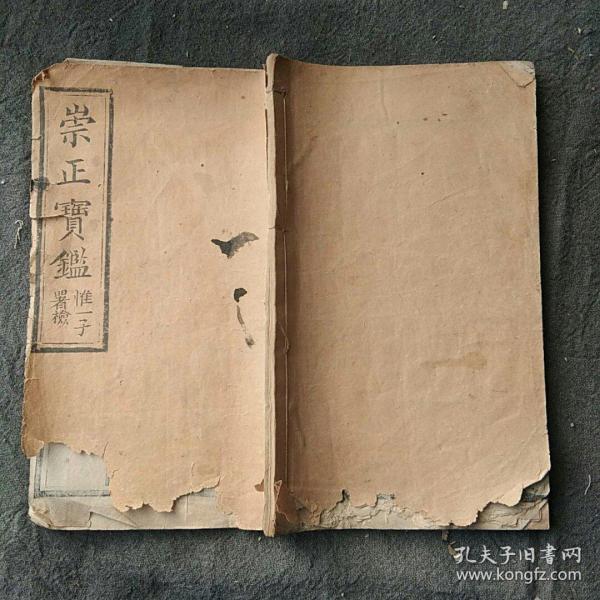 崇正寶鑑
惟一子
署檢
孔夫子旧書网
www.kongfz.com